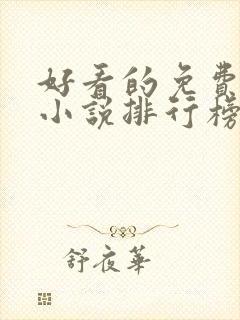 好看的免費
小說排行榜
舒夜華